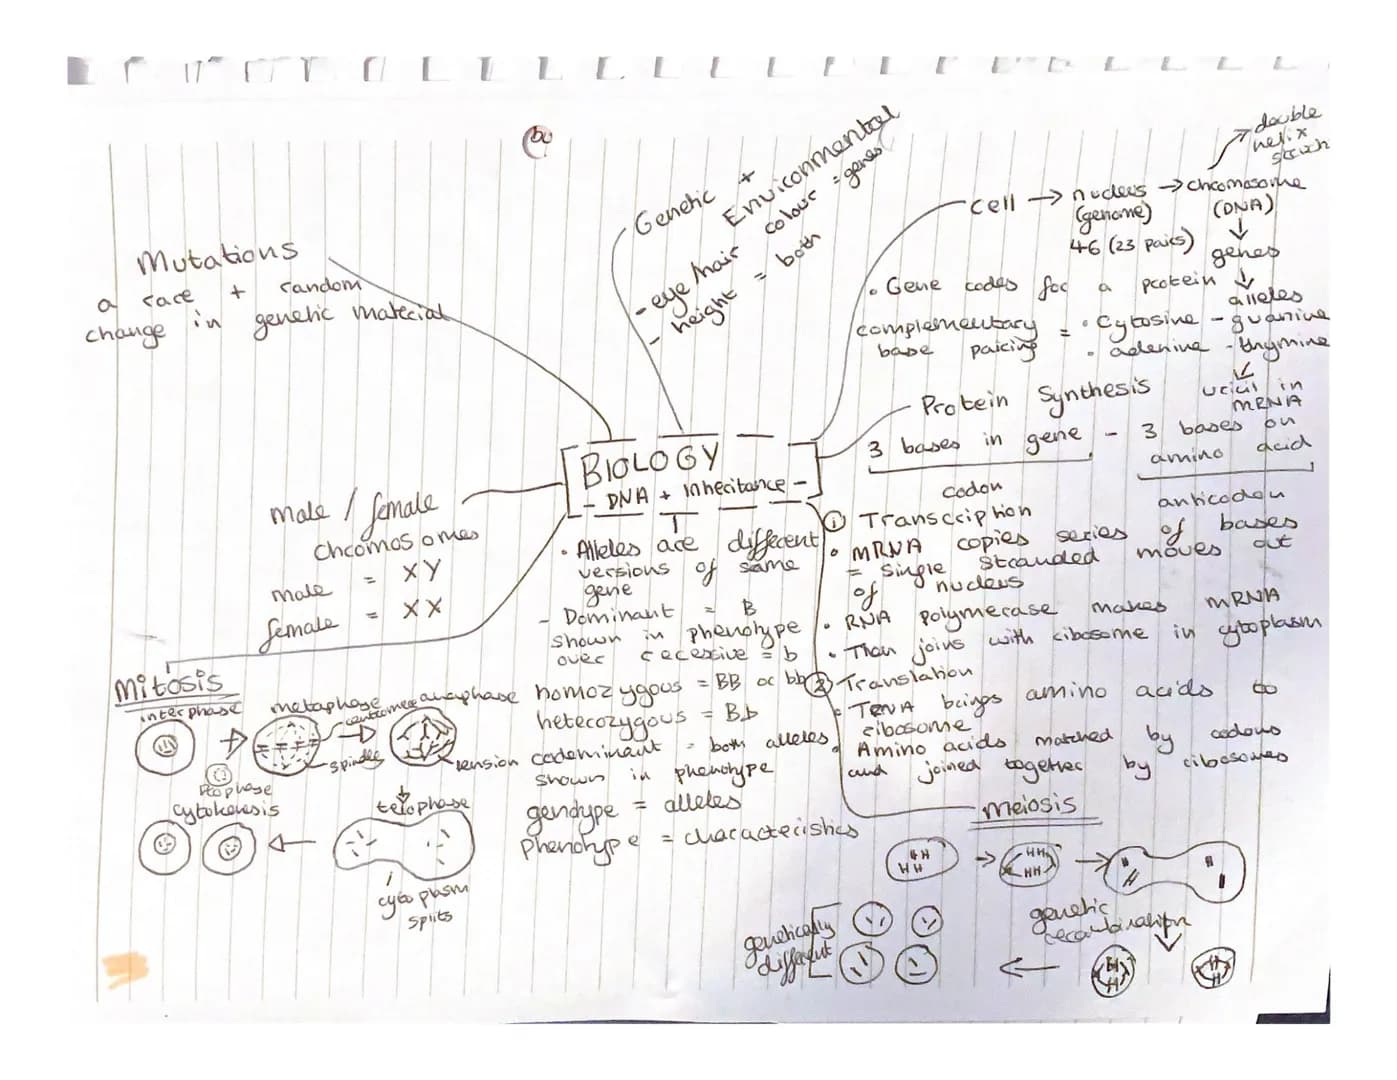 BIOLOGY
- DNA + Inheritance -
Mutations
a rare + random
change in genetic material
Genetic +
Environmental
- eye/hair colour = genes
- height = both
cell → nucleus → chromosome
(genome)
(DNA)
46 (23 pairs)
double
helix
genes
alleles
• Gene codes for a protein
complementary
base pairing
= • Cytosine - guanine
• adenine - thymine
uricil in
mRNA
Protein Synthesis
3 bases in gene - 3 bases on
amino acid
codon
anticodon
① Transcription
• mRNA copies series of bases
= single stranded moves out
of nucleus
• RNA polymerase makes mRNA
• Than joins with ribosome in cytoplasm
② Translation
• TRNA brings amino acids to
ribosome
• Amino acids matched by codons
and joined together by ribosomes
male / female
chromosomes
male = XY
female = XX
• Alleles are different
versions of same
gene
- Dominant = B
shown in phenotype
over recessive = b
homozygous = BB or bb
heterozygous = Bb
codominant = both alleles
shown in phenotype
genotype = alleles
phenotype = characteristics
Mitosis
interphase
Prophase
metaphase
centromere
spindle
anaphase
tension
telophase
cytoplasm
splits
cytokenesis
meiosis
genetic
recombination
genetically
different